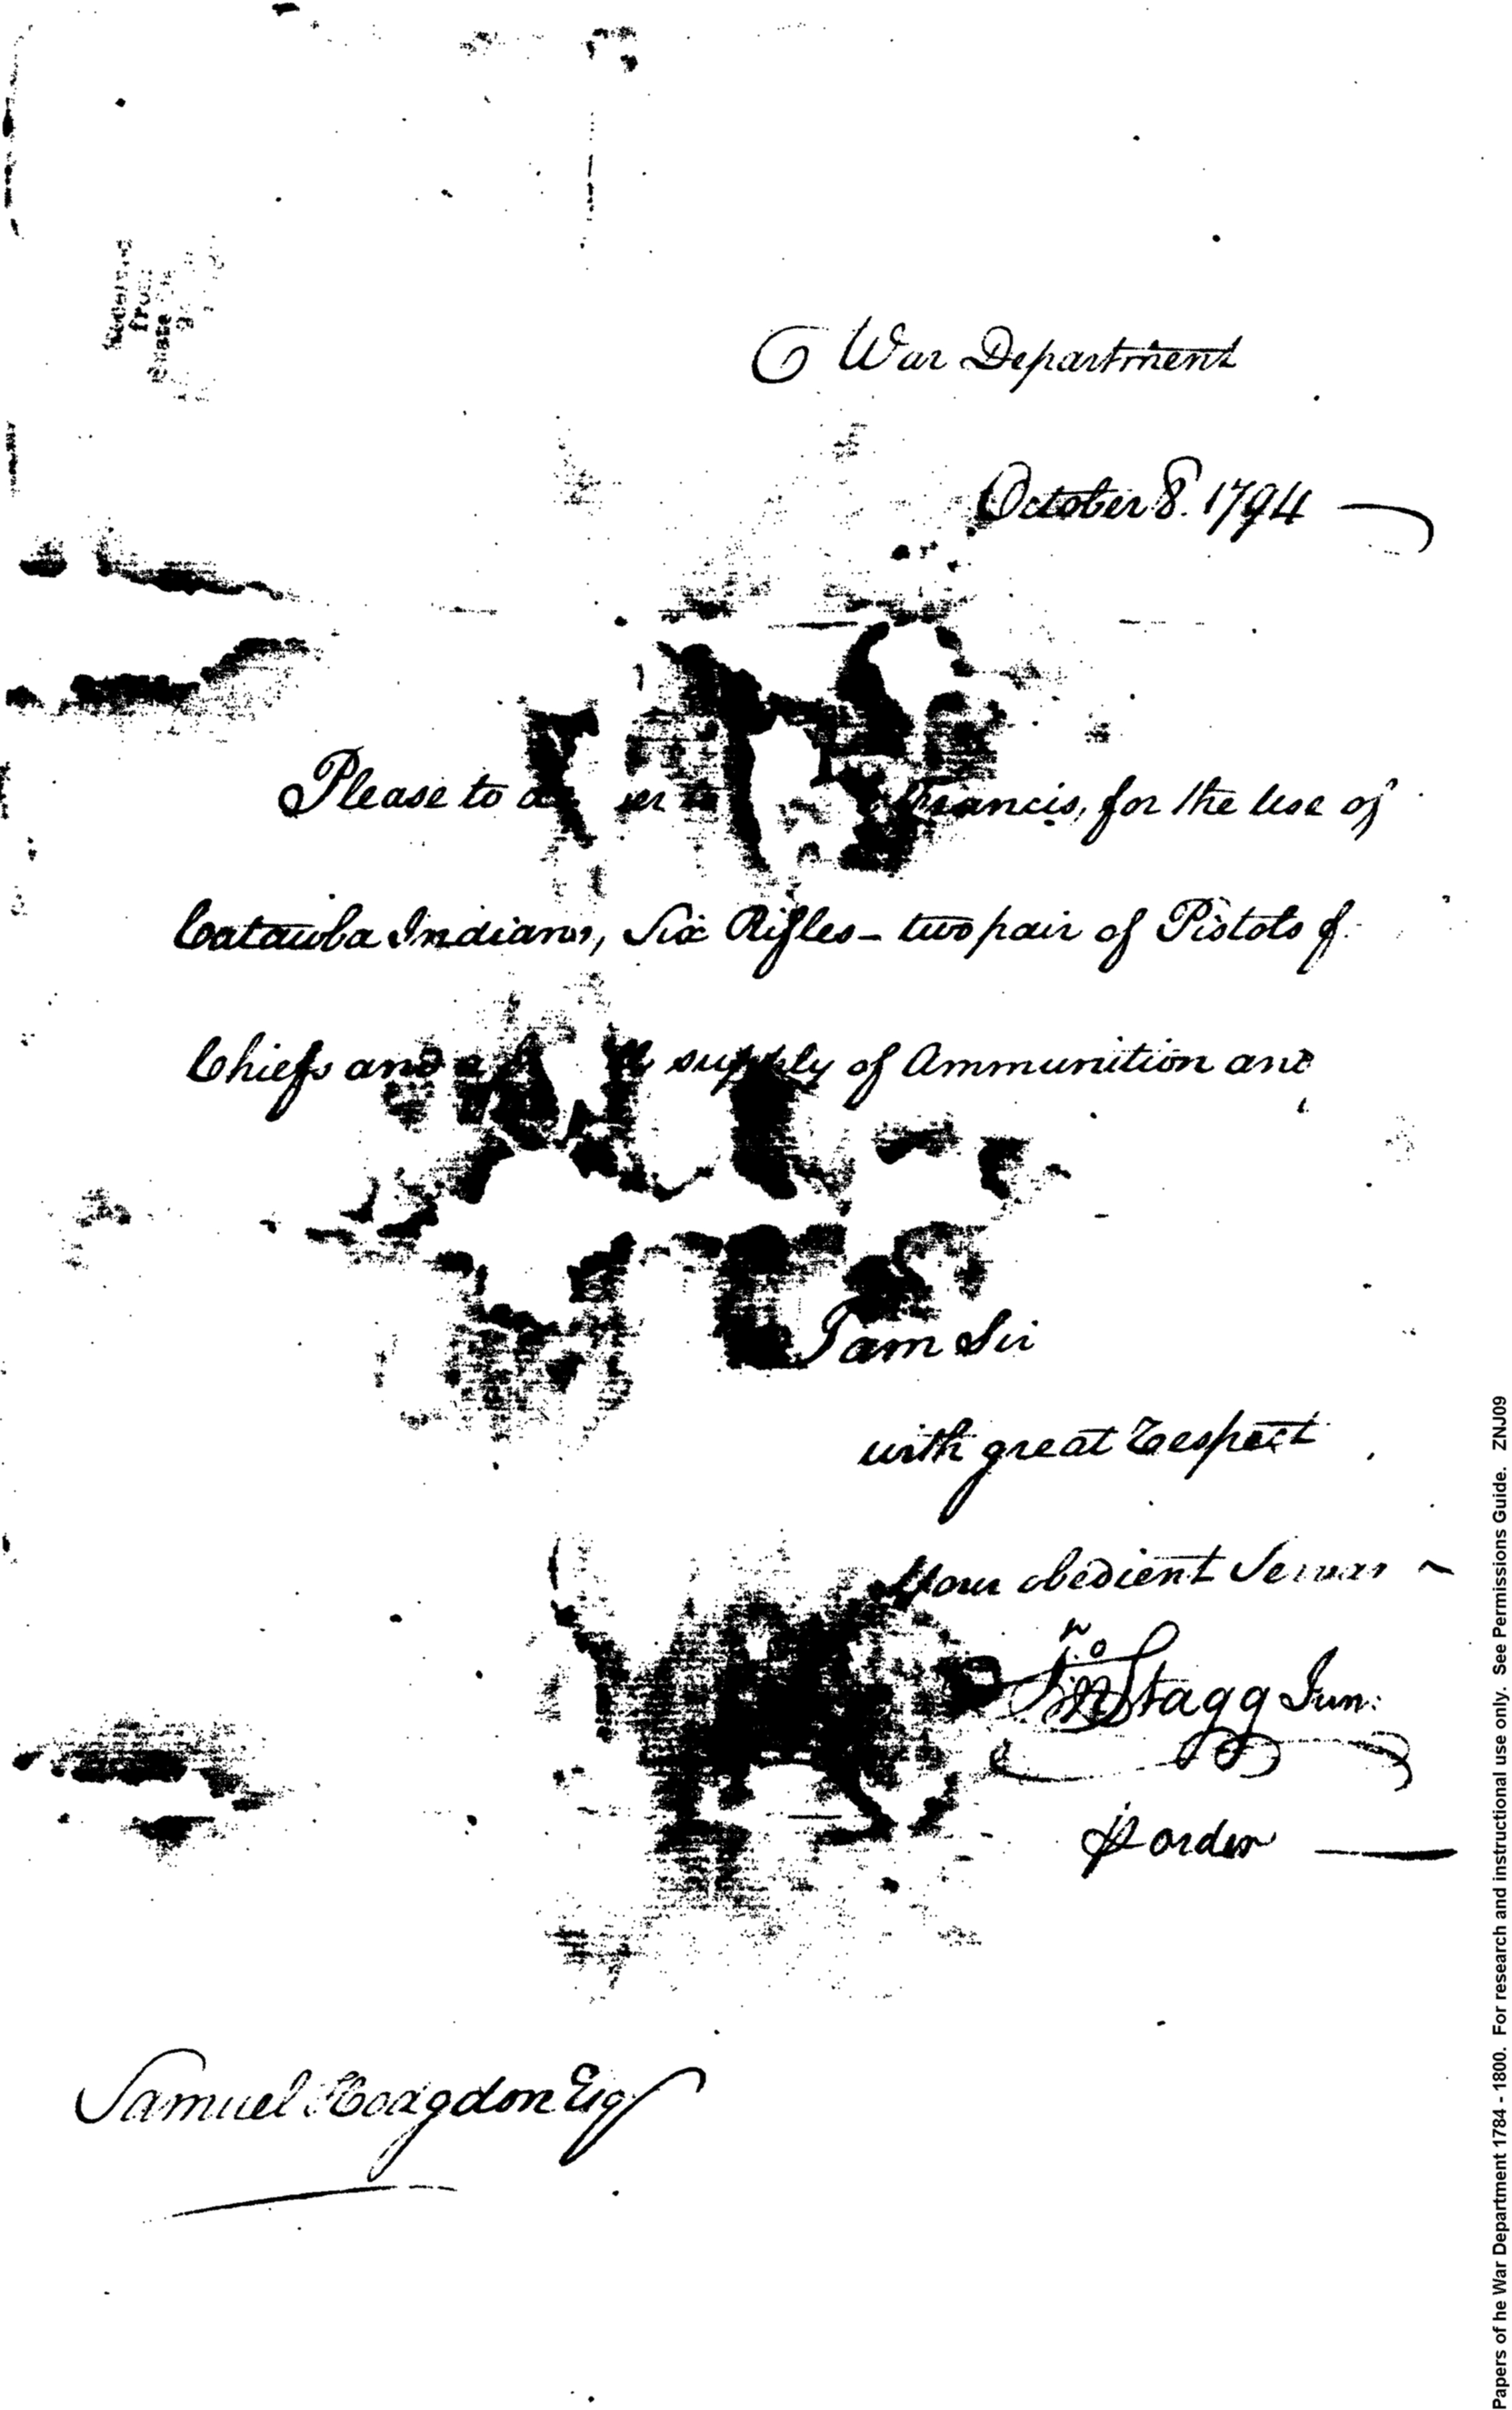 War Department
October 8. 1794
Please to Francis, for the use of
Catawba Indians, Six Rifles - two pair of Pistols f
Chiefs and a supply of Ammunition and
I am Sir
with great respect
Your obedient
Jno Stagg Jun:
⅌ order
Samuel Hodgdon Esq
Papers of he War Department 1784 - 1800. For research and instructional use only. See Permissions Guide. ZNJ09